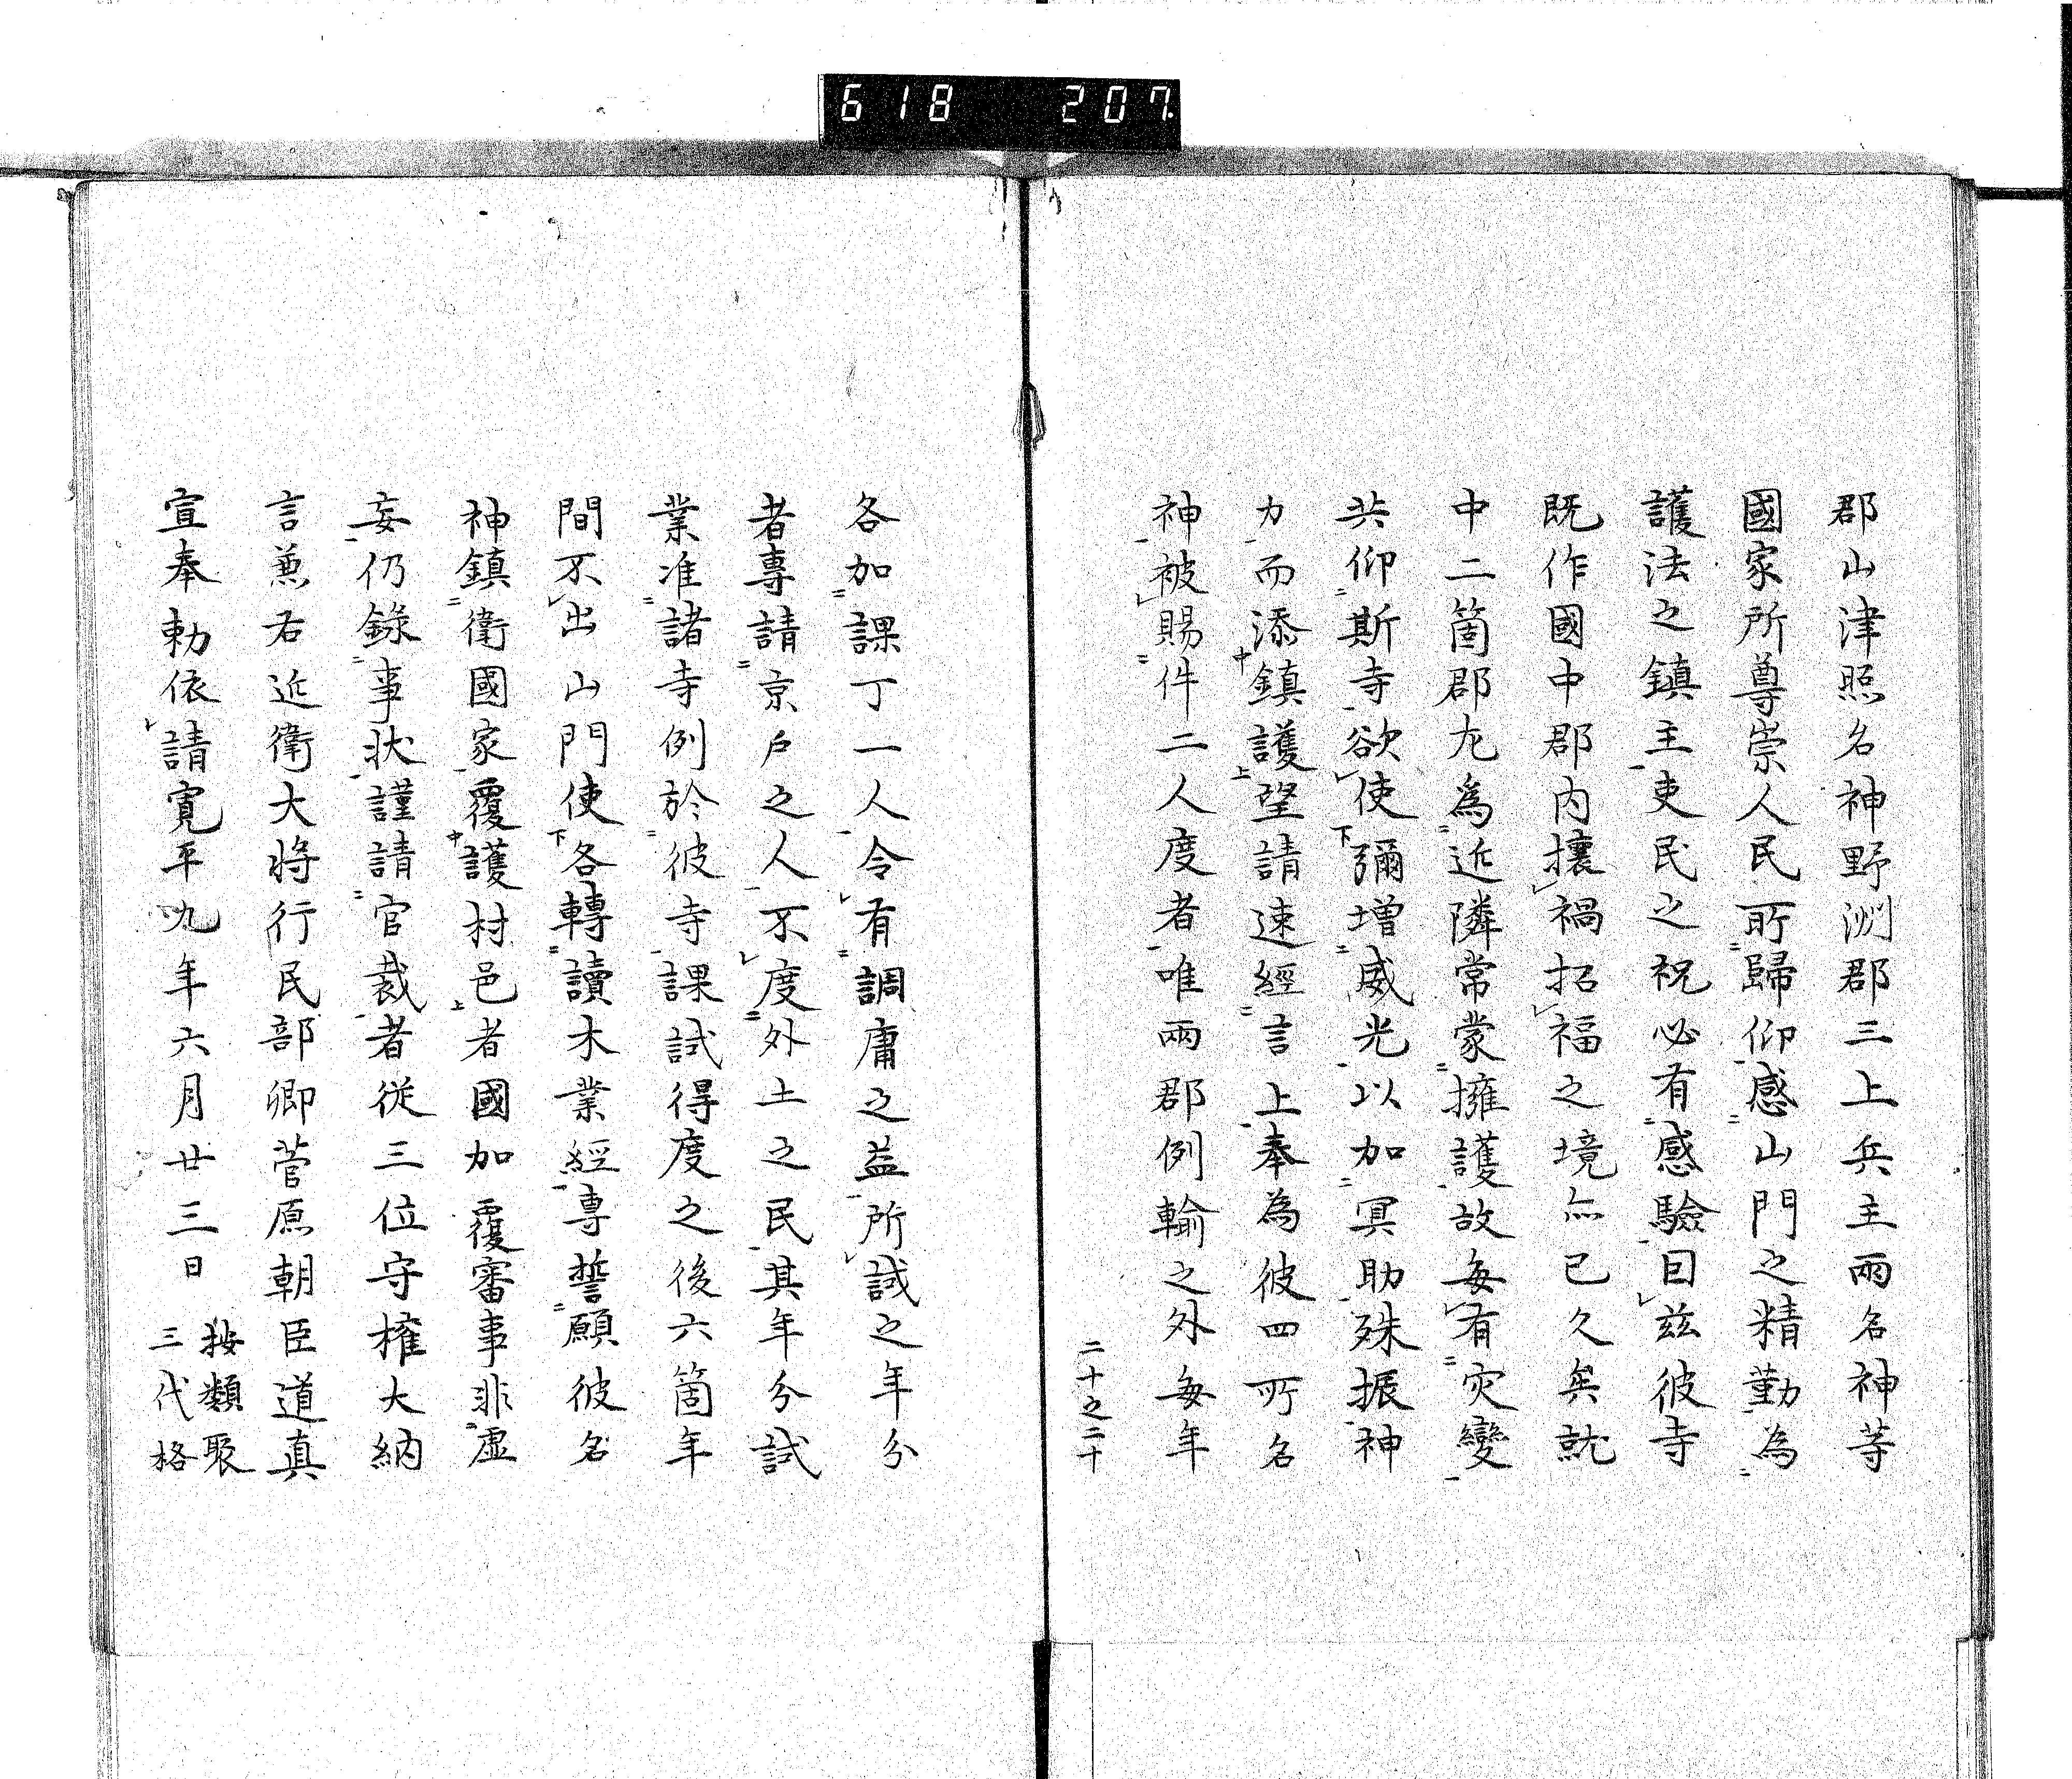 618 207.
郡山津照名神野洲郡三上兵主兩名神等
國家所尊崇人民所歸仰感山門之精勤為
護法之鎮主吏民之祝必有感驗曰茲彼寺
既作國中郡內攘禍招福之境亦已久矣就
中二箇郡尤為近隣常蒙擁護故每有灾變
共仰斯寺欲使彌增威光以加冥助殊振神
力而添鎮護望請速經言上奉為彼四所名
神被賜件二人度者唯兩郡例輸之外每年
二十之二十
各加課丁一人令有調庸之益所試之年分
者專請京戶之人不度外土之民其年分試
業准諸寺例於彼寺課試得度之後六箇年
間不出山門使各轉讀木業經專誓願彼名
神鎮衛國家覆護村邑者國加覆審事非虛
妄仍錄事状謹請官裁者従三位守權大納
言兼右近衛大將行民部卿菅原朝臣道真
宣奉勅依請寬平九年六月廿三日 按類聚
三代格